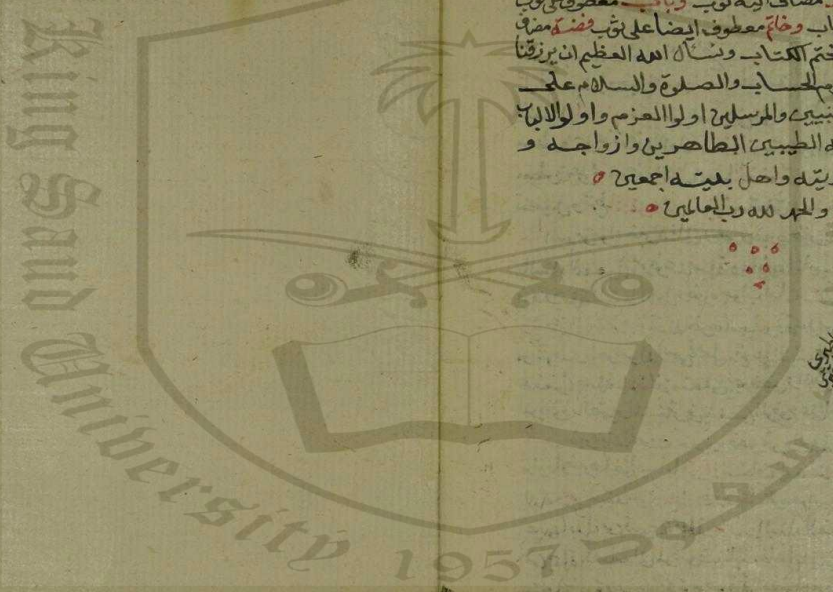 مضاف اليه ثوب وباب معطوف على ثوب
اب وخاتم معطوف ايضا على ثوب فضة مضاف
ختم الكتاب ونسأل الله العظيم ان يرزقنا
وم الحساب والصلوة والسلام على
نبيين والمرسلين اولوا العزم واولو الالباب
ه الطيبين الطاهرين وازواجه و
ريته واهل بيته اجمعين
والحمد لله رب العالمين
King Saud University
1957
سعود